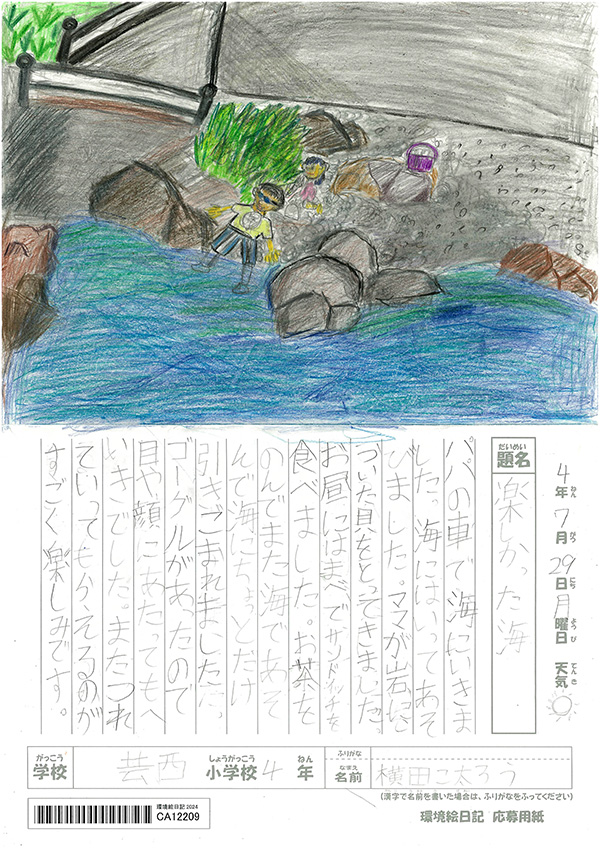 4年ねん7月がつ29日にち月曜日ようび 天気てんき
だいめい
題名 楽しかった海
パパの車で海にいきま
した。海にはいってあそ
びました。ママが岩に
づいた貝をとってきました。
お昼にはまべでサンドイッチを
食べました。お茶を
のんでまた海であそ
んで海にちょっとだけ
引きごまれました。
ゴーグルがあったので
目や顔にあたってもへ
いきでした。またつれ
ていってもらえるのが
すごく楽しみです。
がっこう しょうがっこう ねん ふりがな
学校 芸西 小学校 4 年 なまえ 名前 横田こ太ろう
(漢字で名前を書いた場合は、ふりがなをふってください)
環境絵日記2024
CA12209
環境絵日記 応募用紙